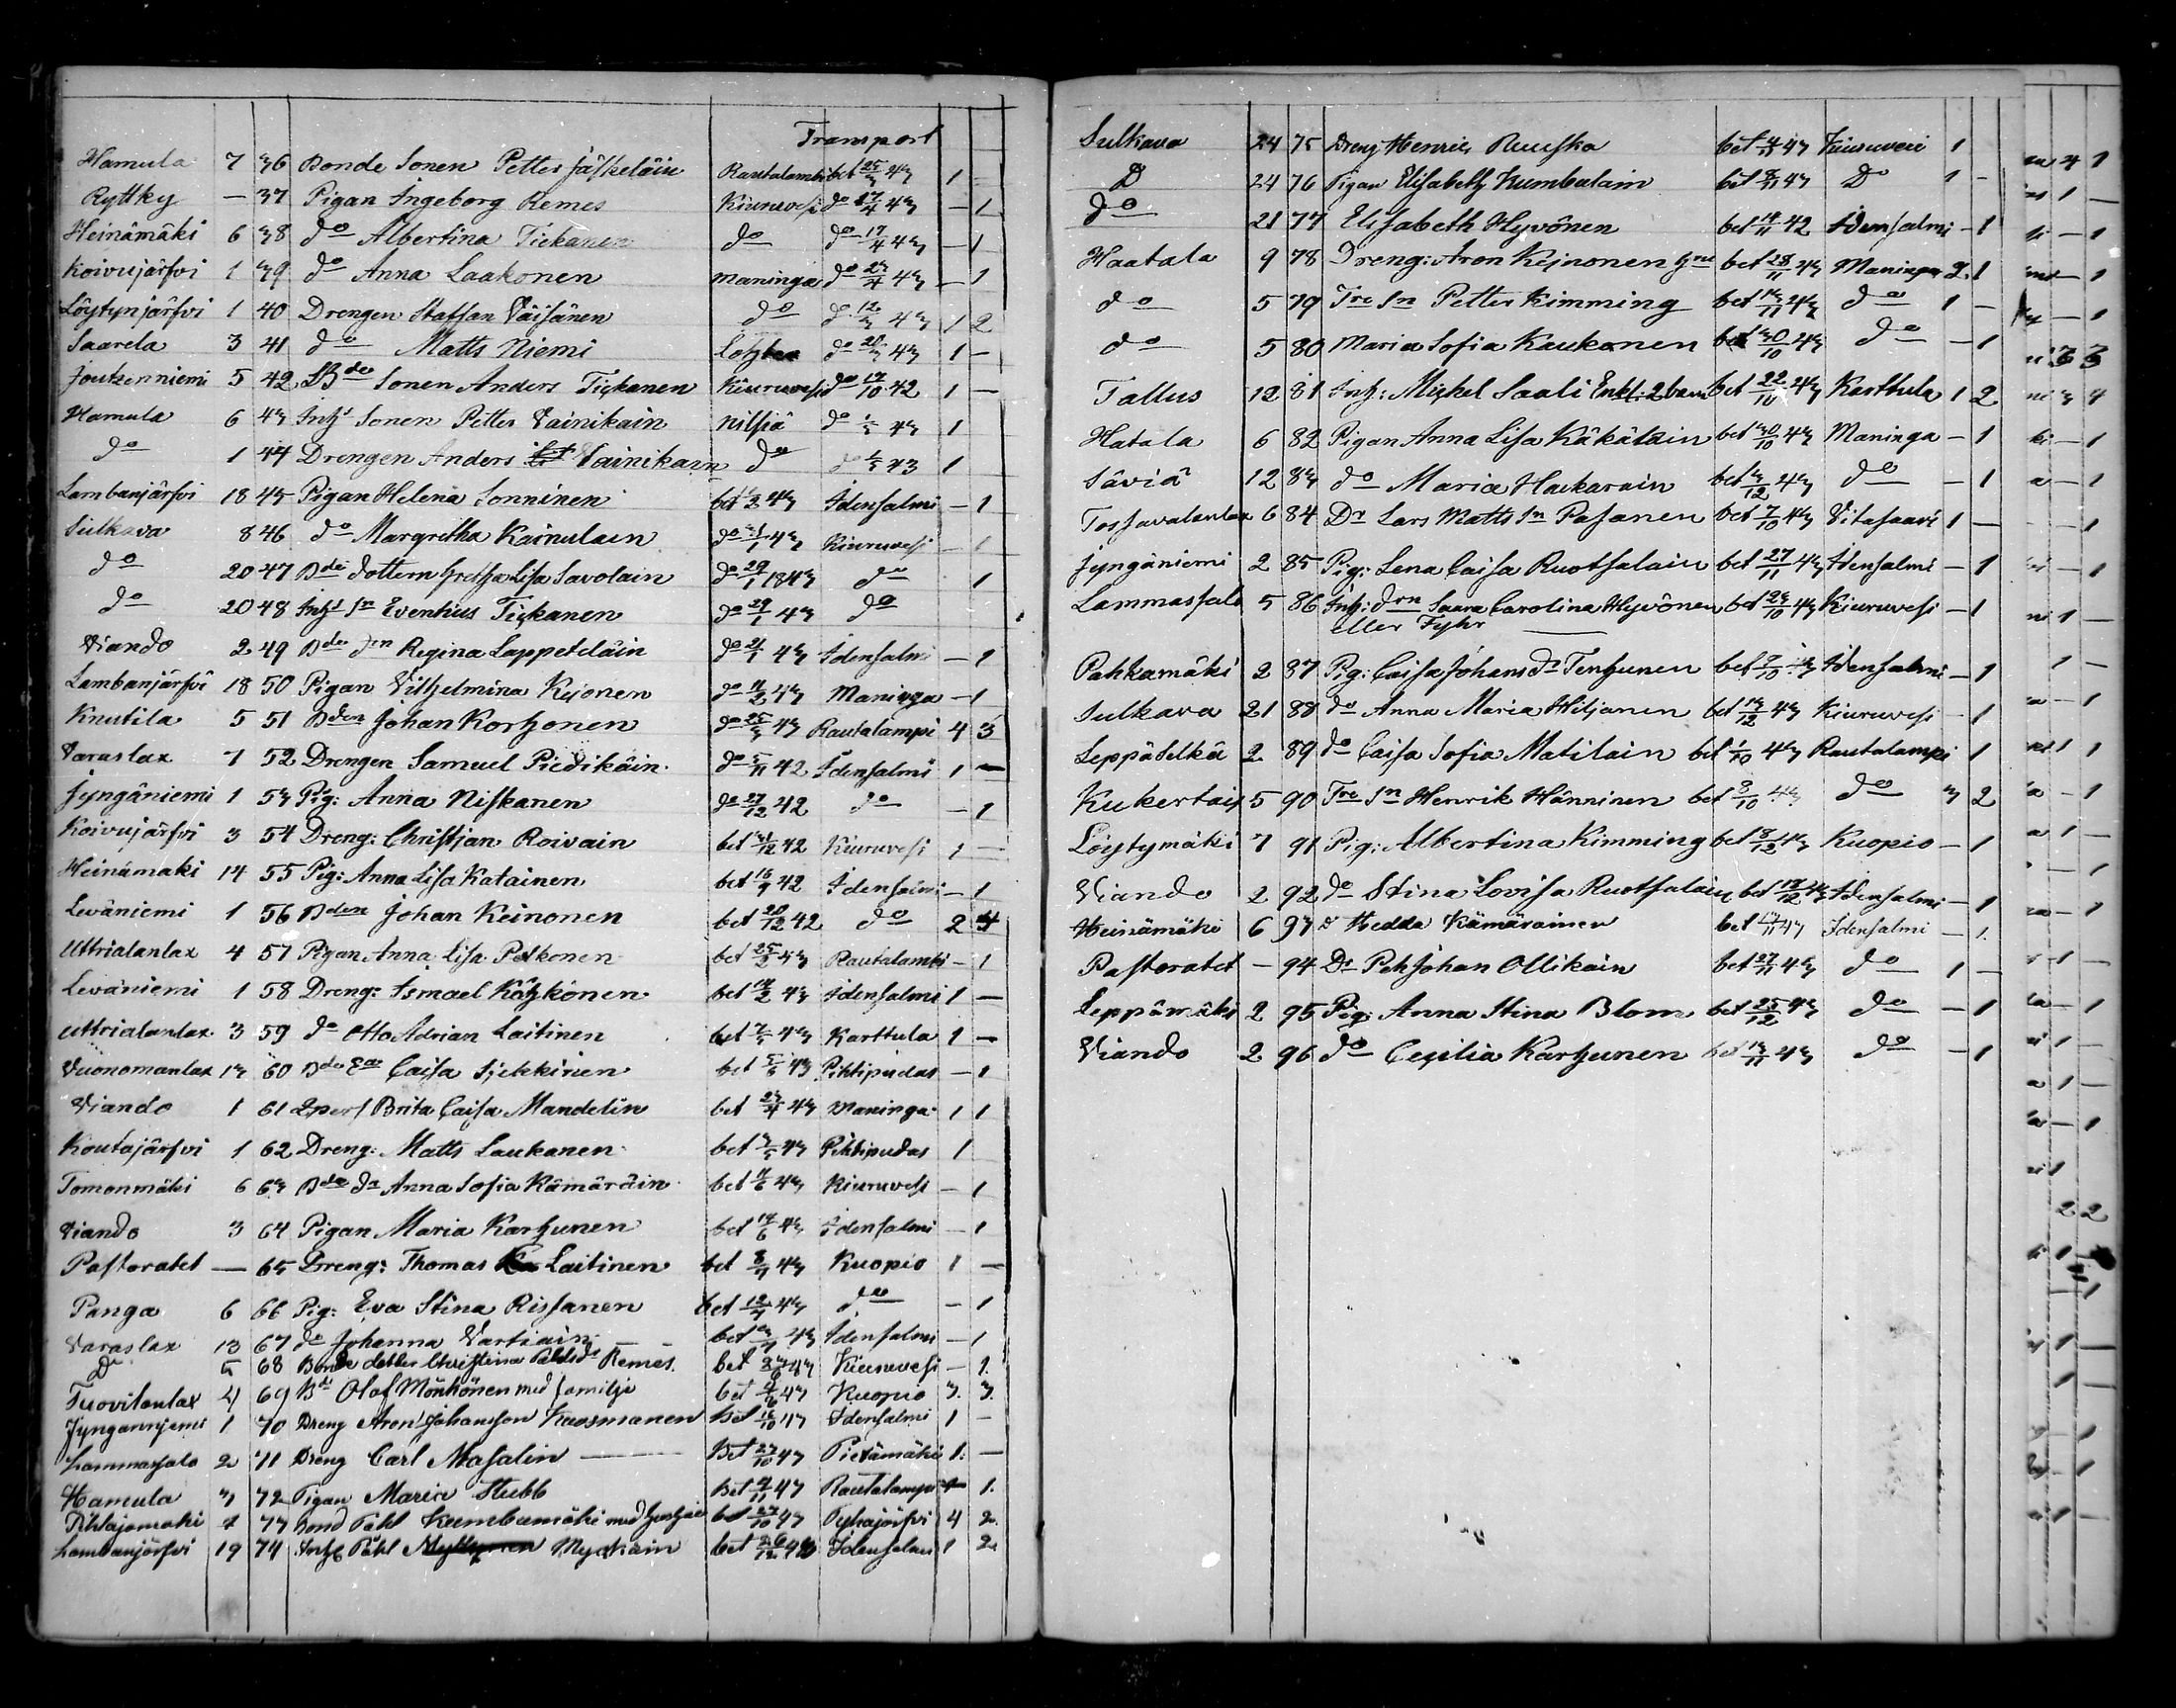 Transport
Hamula 7 36 Bonde Sonen Petter Jäskeläin Rautalambi bet 25/3 43 1
Ryttky — 37 Pigan Ingeborg Remes Kiuruvesi do 17/4 43 — 1
Heinämäki 6 38 do Albertina Tickanen do do 17/4 43 — 1
Koivujärfvi 1 39 do Anna Laakonen Maninga do 23/4 43 — 1
Löytynjärfvi 1 40 Drengen Staffan Väisänen do d 12/3 43 1 2
Saarela 3 41 do Matts Niemi do 20/3 43 1 —
Joutzenniemi 5 42 Bde Sonen Anders Tickanen Kiuruvesi do 17/10 42 1 —
Hamula 6 43 Inhs Sonen Petter Vainikain Nilsiä do 43 1
do 1 44 Drengen Anders Vainikain do 43 1
Lambanjärfvi 18 45 Pigan Helena Sonninen bet 43 Idensalmi — 1
Sulkava 8 46 do Margretha Kainulain do 43 Kiuruvesi — 1
do 20 47 Bde dottern Gretha Lisa Savolain do 29/1 1843 do 1
do 20 48 Inhs Sn Eventius Tickanen do 29/1 43 do
Viando 2 49 Bde drn Regina Lappeteläin do 21/1 43 Idensalmi — 1
Lambanjärfvi 18 50 Pigan Vilhelmina Kejonen do 43 Maninga — 1
Knutila 5 51 Bden Johan Korhonen do 25/3 43 Rautalampi 4 3
Varaslax 7 52 Drengen Samuel Piedikäin do 5/11 42 Idensalmi 1 —
Jyngäniemi 1 53 Pig: Anna Niskanen do 27/12 42 do — 1
Koivujärfvi 3 54 Dreng: Christjan Roivain bet 31/12 42 Kiuruvesi 1 —
Heinämäki 14 55 Pig: Anna Lisa Katainen bet 16/9 42 Idensalmi — 1
Leväniemi 1 56 Bden Johan Keinonen bet 20/12 42 do 2 4
Uttrialanlax 4 57 Pigan Anna Lisa Pelkonen bet 25/2 43 Rautalambi — 1
Leväniemi 1 58 Dreng: Ismael Kähkönen bet 43 Idensalmi 1 —
Uttrialanlax 3 59 do Otto Adrian Laitinen bet 7/5 43 Karttula 1 —
Vuonomanlax 13 60 Bde Caisa Sickinen bet 43 Pihtipudas — 1
Viando 1 61 Brita Caisa Mandelin bet 23/4 43 Maninga 1 1
Koutajärfvi 1 62 Dreng: Matts Laukanen bet 43 Pihtipudas 1
Tomonmäki 6 63 Bde dr Anna Sofia Kämäräin bet 43 Kiuruvesi — 1
Viando 3 64 Pigan Maria Karhunen bet 17/6 43 Idensalmi — 1
Pastoratet — 65 Dreng: Thomas Laitinen bet 43 Kuopio 1 —
Panga 6 66 Pig: Eva Stina Rissanen bet 12/7 43 do — 1
Varaslax 13 67 do Johanna Vartiain bet 43 Idensalmi — 1
Do 5 68 Bonde dotter Christina Pahlsdr Remes. bet 43 Kiuruvesi — 1.
Tuovilanlax 4 69 Bde Olof Mönkönen med familje bet 43 Kuopio 3. 3.
Jynganniemi 1 70 Dreng Aron Johansson Kaosmanen Bet 16/10 43 Idensalmi 1 —
Lammassalo 2 71 Dreng Carl Masalin Bet 27/10 43 Pielämäki 1. —
Hamula 3 72 Pigan Maria Stubb Bet 4/11 43 Rautalampi 1.
Pihlajamäki 4 73 Bond Påhl Kumbumäki med hustru bet 27/10 43 Pyhäjärfvi 4 2.
Lambanjärfvi 19 74 Inhs Påhl Myökäin bet 26/12 43 Idensalmi 1 2
Sulkava 24 75 Dreng Henric Ruuska bet 43 Kiuruvesi 1
D 24 76 Pigan Elisabeth Kumbulain bet 8/11 43 Do 1 —
do 21 77 Elisabeth Hyvönen bet 14/11 42 Idensalmi — 1
Haatala 9 78 Dreng: Aron Keinonen bet 28/11 43 Maninga 2. 1
do 5 79 Tre Sn Petter Kimming bet 43 do 1 —
do 5 80 Maria Sofia Kaukonen bet 30/10 43 do — 1
Tallus 12 81 Inh: Michel Saali Enkl: 2 barn bet 22/10 43 Karttula 1 2
Hatala 6 82 Pigan Anna Lisa Käkäläin bet 30/10 43 Maninga — 1
Säviä 12 83 do Maria Hackarain bet 43 do — 1
Tossavalanlax 6 84 Dr Lars Matts Sn Pasanen bet 7/10 43 Vitasaari 1 —
Jyngäniemi 2 85 Pig: Lena Caisa Ruotsalain bet 27/11 43 Idensalmi — 1
Lammassalo 5 86 Inh: drn Saara Carolina Hyvönen bet 23/10 43 Kiuruvesi — 1
eller Fyhr
Pahkamäki 2 87 Pig: Caisa Johans dr Tenhunen bet 43 Idensalmi — 1
Sulkava 21 88 do Anna Maria Hiljanen bet 13/12 43 Kiuruvesi — 1
Leppäselkä 2 89 do Caisa Sofia Matilain bet 1/10 43 Rautalampi 1
Kukertais 5 90 Tre Sn Henrik Hänninen bet 8/10 43 do 3 2
Löytymäki 7 91 Pig: Albertina Kimming bet 8/12 43 Kuopio — 1
Viando 2 92 do Stina Lovisa Ruotsalain bet 17/12 43 Idensalmi — 1
Heinämäki 6 93 D Hedda Kämäräinen bet 43 Idensalmi — 1.
Pastoratet — 94 Dr Pehr Johan Ollikain bet 27/11 43 do 1 —
Leppämäki 2 95 Pig: Anna Stina Blom bet 25/12 43 do — 1
Viando 2 96 do Cecilia Karhunen bet 13/11 43 do — 1